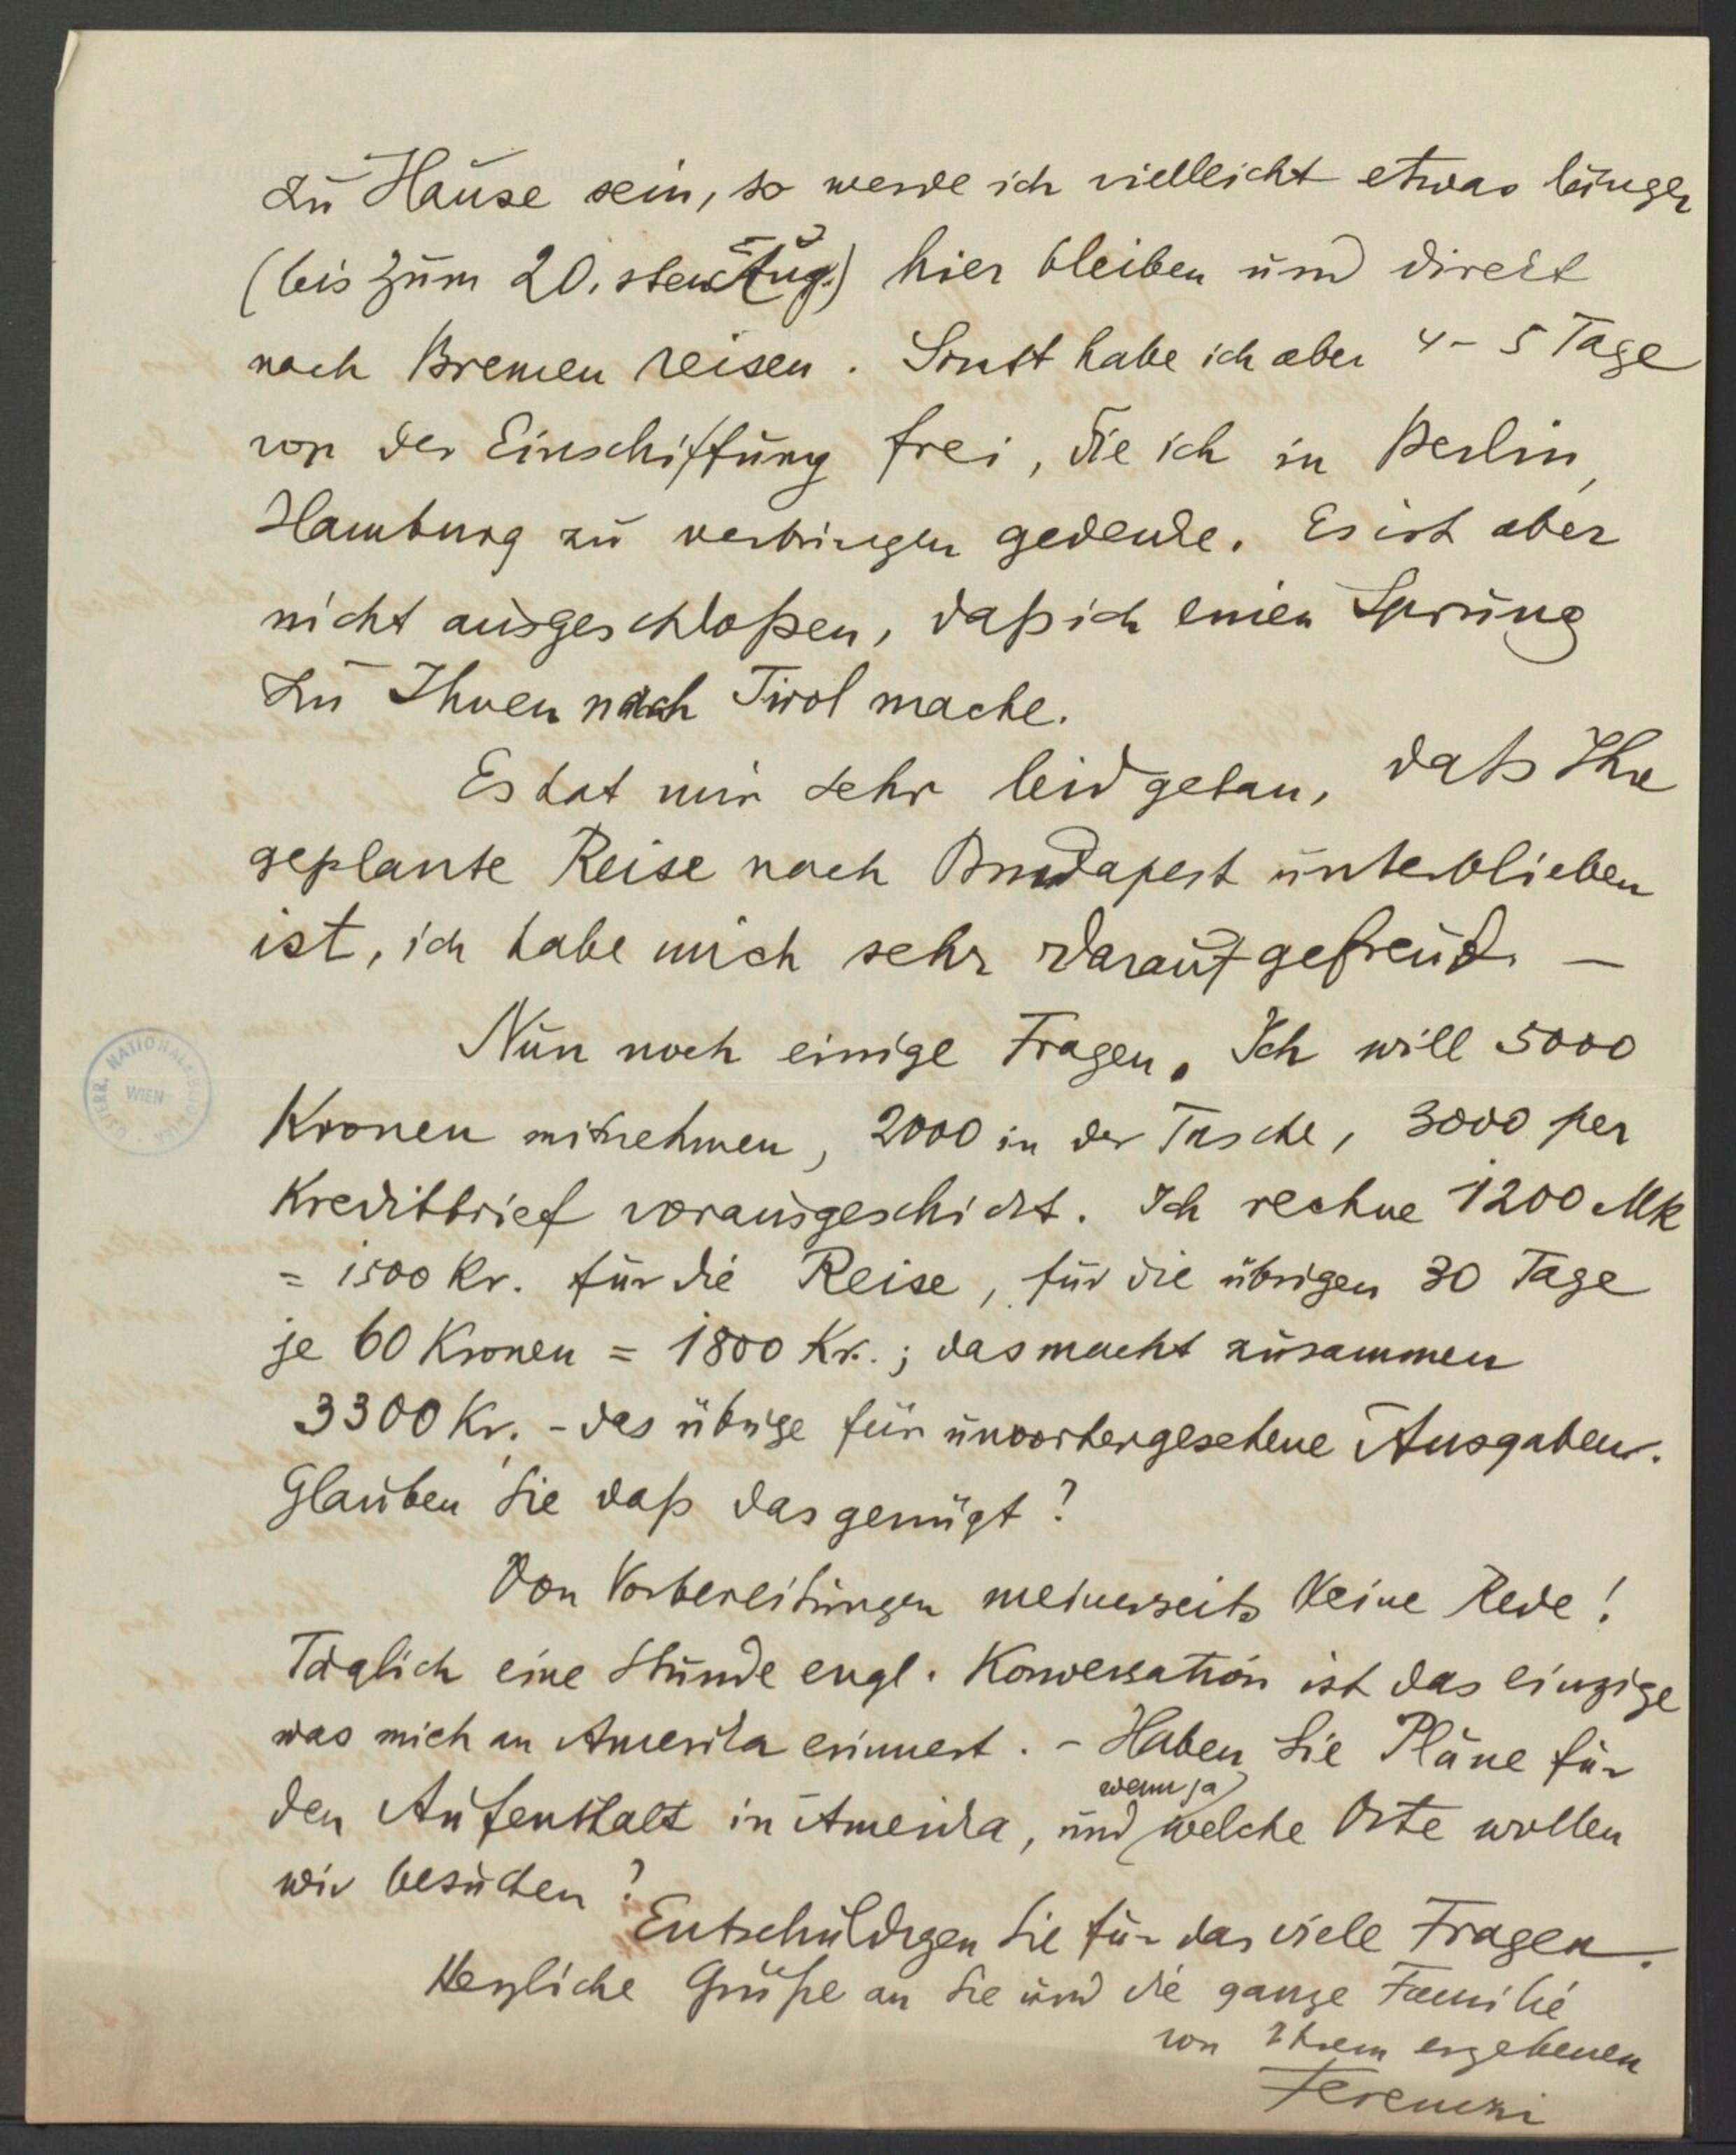 zu Hause sein, so werde ich vielleicht etwas länger
(bis zum 20.sten Aug.) hier bleiben und direkt
nach Bremen reisen. Sonst habe ich aber 4-5 Tage
vor der Einschiffung frei, die ich in Berlin,
Hamburg zu verbringen gedenke. Es ist aber
nicht ausgeschloßen, daß ich einen Sprung
zu Ihnen nach Tirol mache.
Es hat mir sehr leid getan, daß Ihre
geplante Reise nach Budapest unterblieben
ist, ich habe mich sehr darauf gefreut. —
Nun noch einige Fragen. Ich will 5000
Kronen mitnehmen, 2000 in der Tasche, 3000 per
Kreditbrief vorausgeschickt. Ich rechne 1200 Mk
= 1500 Kr. für die Reise, für die übrigen 30 Tage
je 60 Kronen = 1800 Kr.; das macht zusammen
3300 Kr. - das übrige für unvorhergesehene Ausgaben.
Glauben Sie daß das genügt?
Von Vorbereitungen meinerseits keine Rede!
Täglich eine Stunde engl. Konversation ist das einzige
was mich an Amerika erinnert. - Haben Sie Pläne für
wenn ja
den Aufenthalt in Amerika, und welche Orte wollen
wir besuchen?
Entschuldigen Sie für das viele Fragen.
Herzliche Grüße an Sie und die ganze Familie
von Ihrem ergebenen
Ferenczi
ÖSTERR. NATIONALBIBLIOTHEK
WIEN